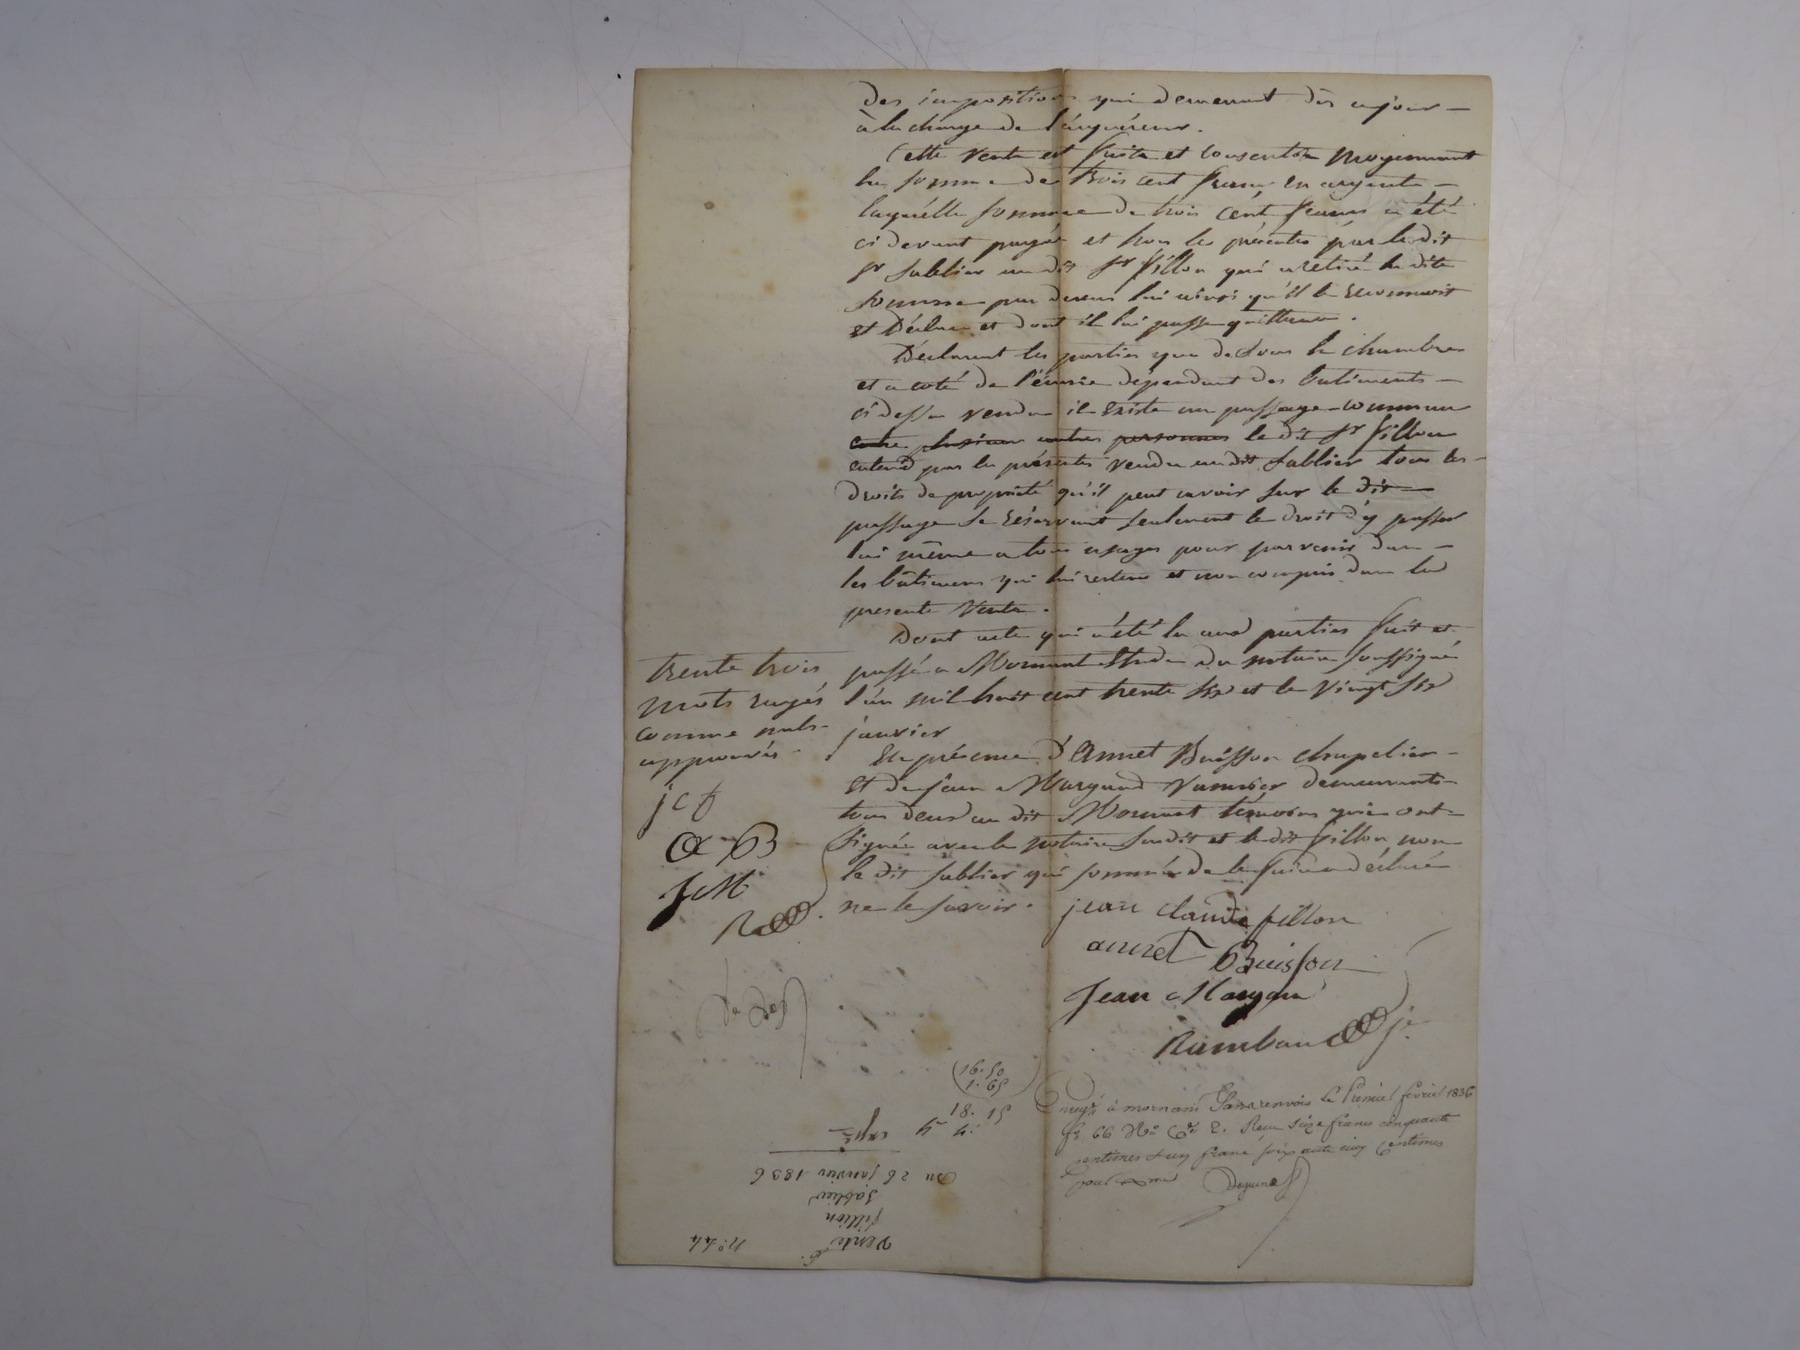 des impositions qui demeurent dès cejour
à la charge de l'acquéreur.
Cette vente est faite et consentie moyennant
la somme de trois cent francs en argent
laquelle somme de trois cent francs a été
ci devant payée et hors les présentes par le dit
sr sablier au dit sr fillon qui a retiré la dite
somme par devers lui ainsi qu'il le reconnoit
et déclare et dont il lui passe quittance.
Déclarent les parties que dessous la chambre
et a coté de l'écurie dépendant des batiments
ci dessus vendu il existe un passage commun
entre plusieurs autres personnes le dit sr fillon
entend par les présentes vendre au dit sablier tous les
droits de propriété qu'il peut avoir sur le dit
passage se réservant seulement le droit d'y passer
lui même a tous usages pour parvenir dans
les bâtimens qui lui restent et non compris dans la
presente vente.
Dont acte qui a été lu aux parties fait et
passé a Mornant Etude du notaire soussigné
l'an mil huit cent trente six et le vingt six
janvier
En présence d'Annet Buisson chapelier
et de jean Margand vannier demeurants
tous deux au dit Mornant témoins qui ont
signé avec le notaire susdit et le dit fillon non
le dit sablier qui sommé de le faire a déclaré
ne le savoir.
trente trois
mots rayés
comme nuls
approuvés
jcf
A B
JM
R
jean claude fillon
annet Buisson
Jean Margand
Rambaud je
Enregé à mornant sans renvois le Premier fevrier 1836
fo 66 Ro Ce 2. Reçu seize francs cinquante
centimes & un franc soixante cinq centimes
pour
16.50
1.65
18.15
expé
Du 26 janvier 1836
Vente
fillion
sablier
No 44